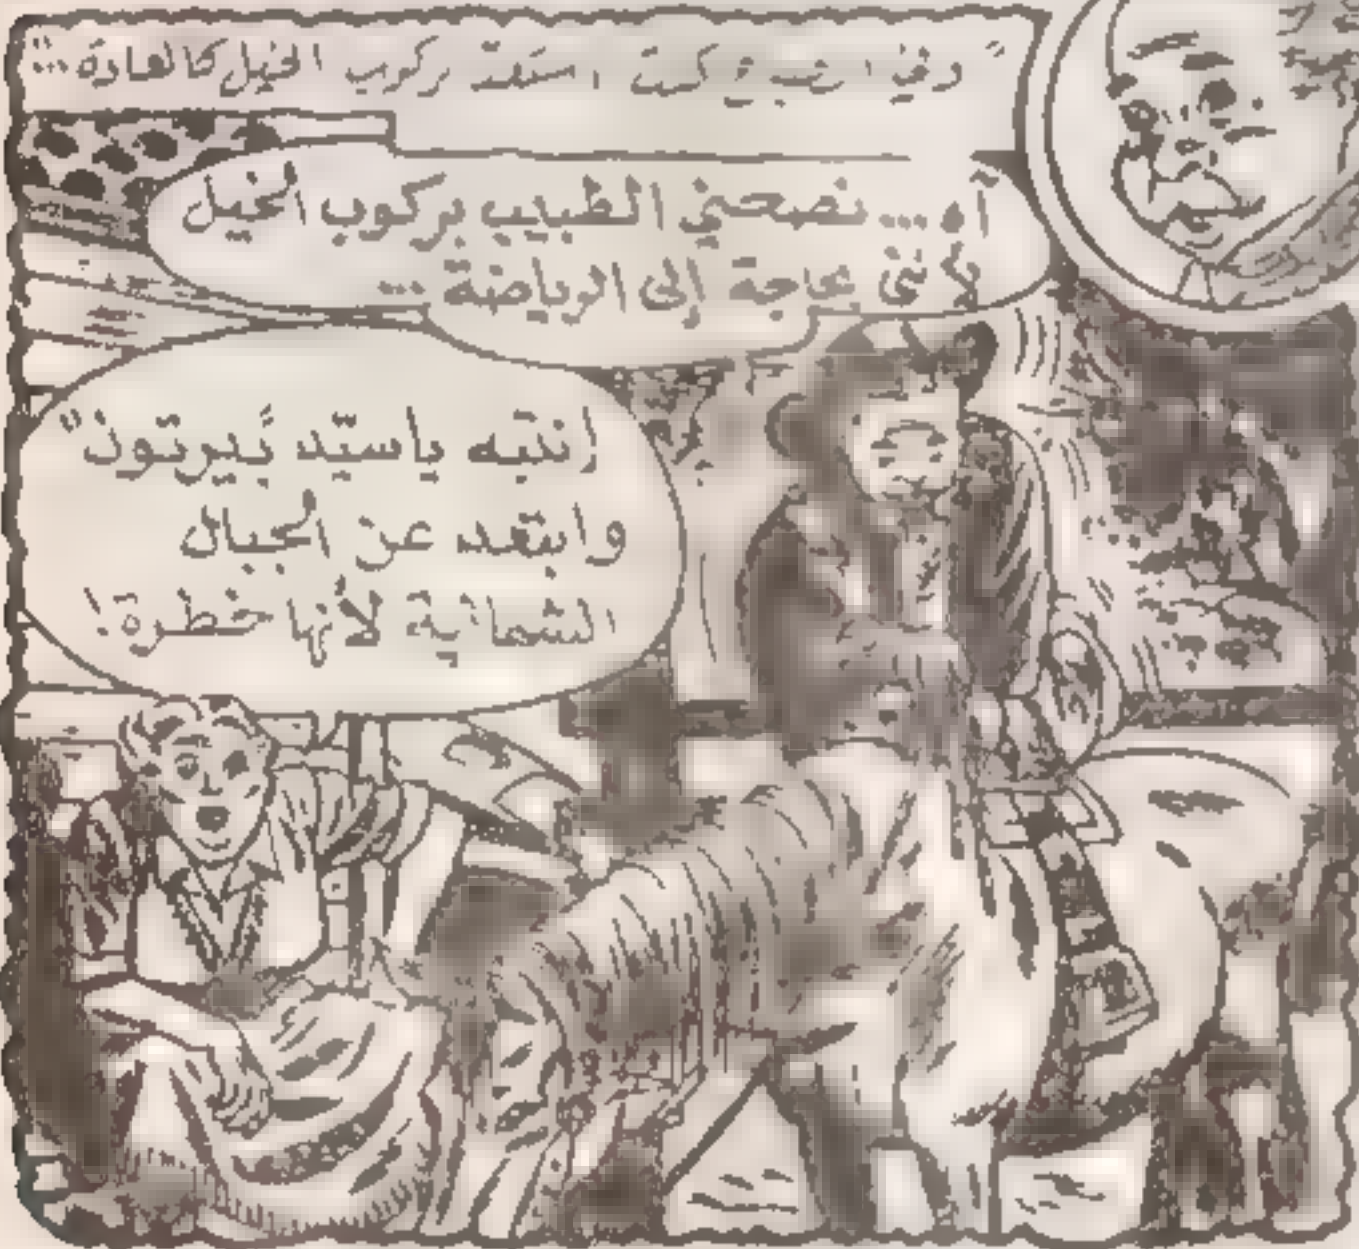 " وفي كنت استعد بركوب الخيل كالعادة ...
آه ... نصحني الطبيب بركوب الخيل
لأنني بحاجة إلى الرياضة ...
انتبه يا سيّد بَيرتون"
وابتعد عن الجبال
الشمالية لأنها خطرة!